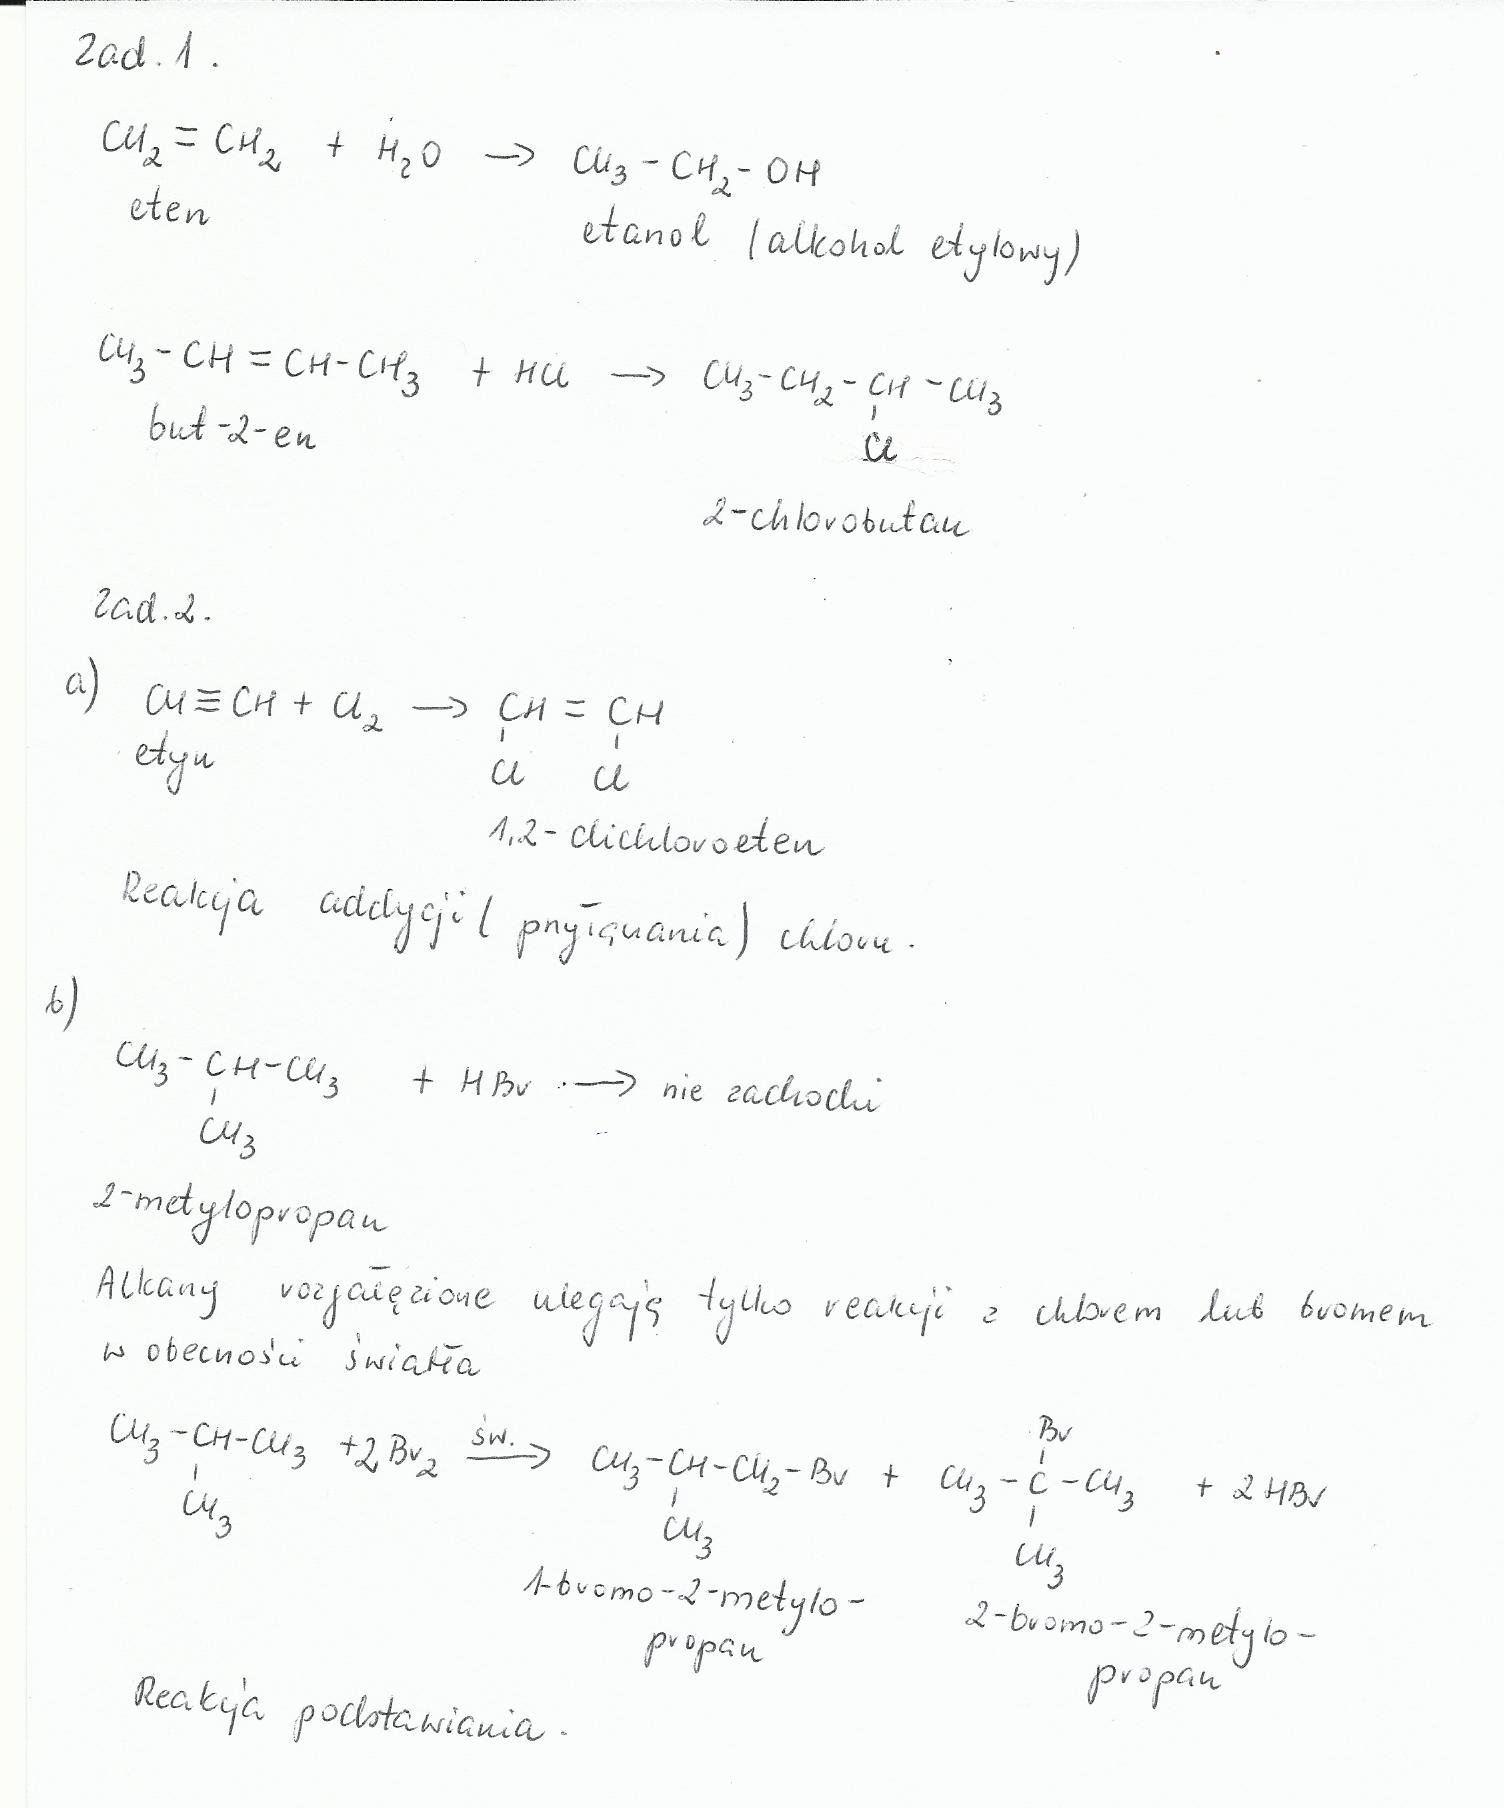 Zad. 1.
CH₂ = CH₂ + H₂O → CH₃ - CH₂ - OH
eten
etanol (alkohol etylowy)
CH₃ - CH = CH - CH₃ + HCl → CH₃ - CH₂ - CH - CH₃
Cl
but-2-en
2-chlorobutan
Zad. 2.
a) CH ≡ CH + Cl₂ → CH = CH
etyn
Cl Cl
1,2-dichloroeten
Reakcja addycji (przyłączania) chloru.
b)
CH₃ - CH - CH₃ + HBr → nie zachodzi
CH₃
2-metylopropan
Alkany rozgałęzione ulegają tylko reakcji z chlorem lub bromem
w obecności światła
Br
CH₃ - CH - CH₃ + 2Br₂ św. → CH₃ - CH - CH₂ - Br + CH₃ - C - CH₃ + 2HBr
CH₃ CH₃ CH₃
1-bromo-2-metylo-
propan
2-bromo-2-metylo-
propan
Reakcja podstawiania.